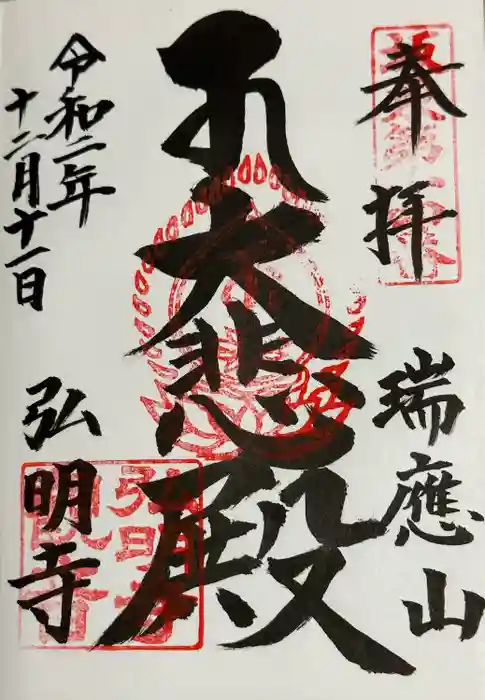 奉拝
瑞應山
大悲殿
令和二年
十二月十一日
弘明寺